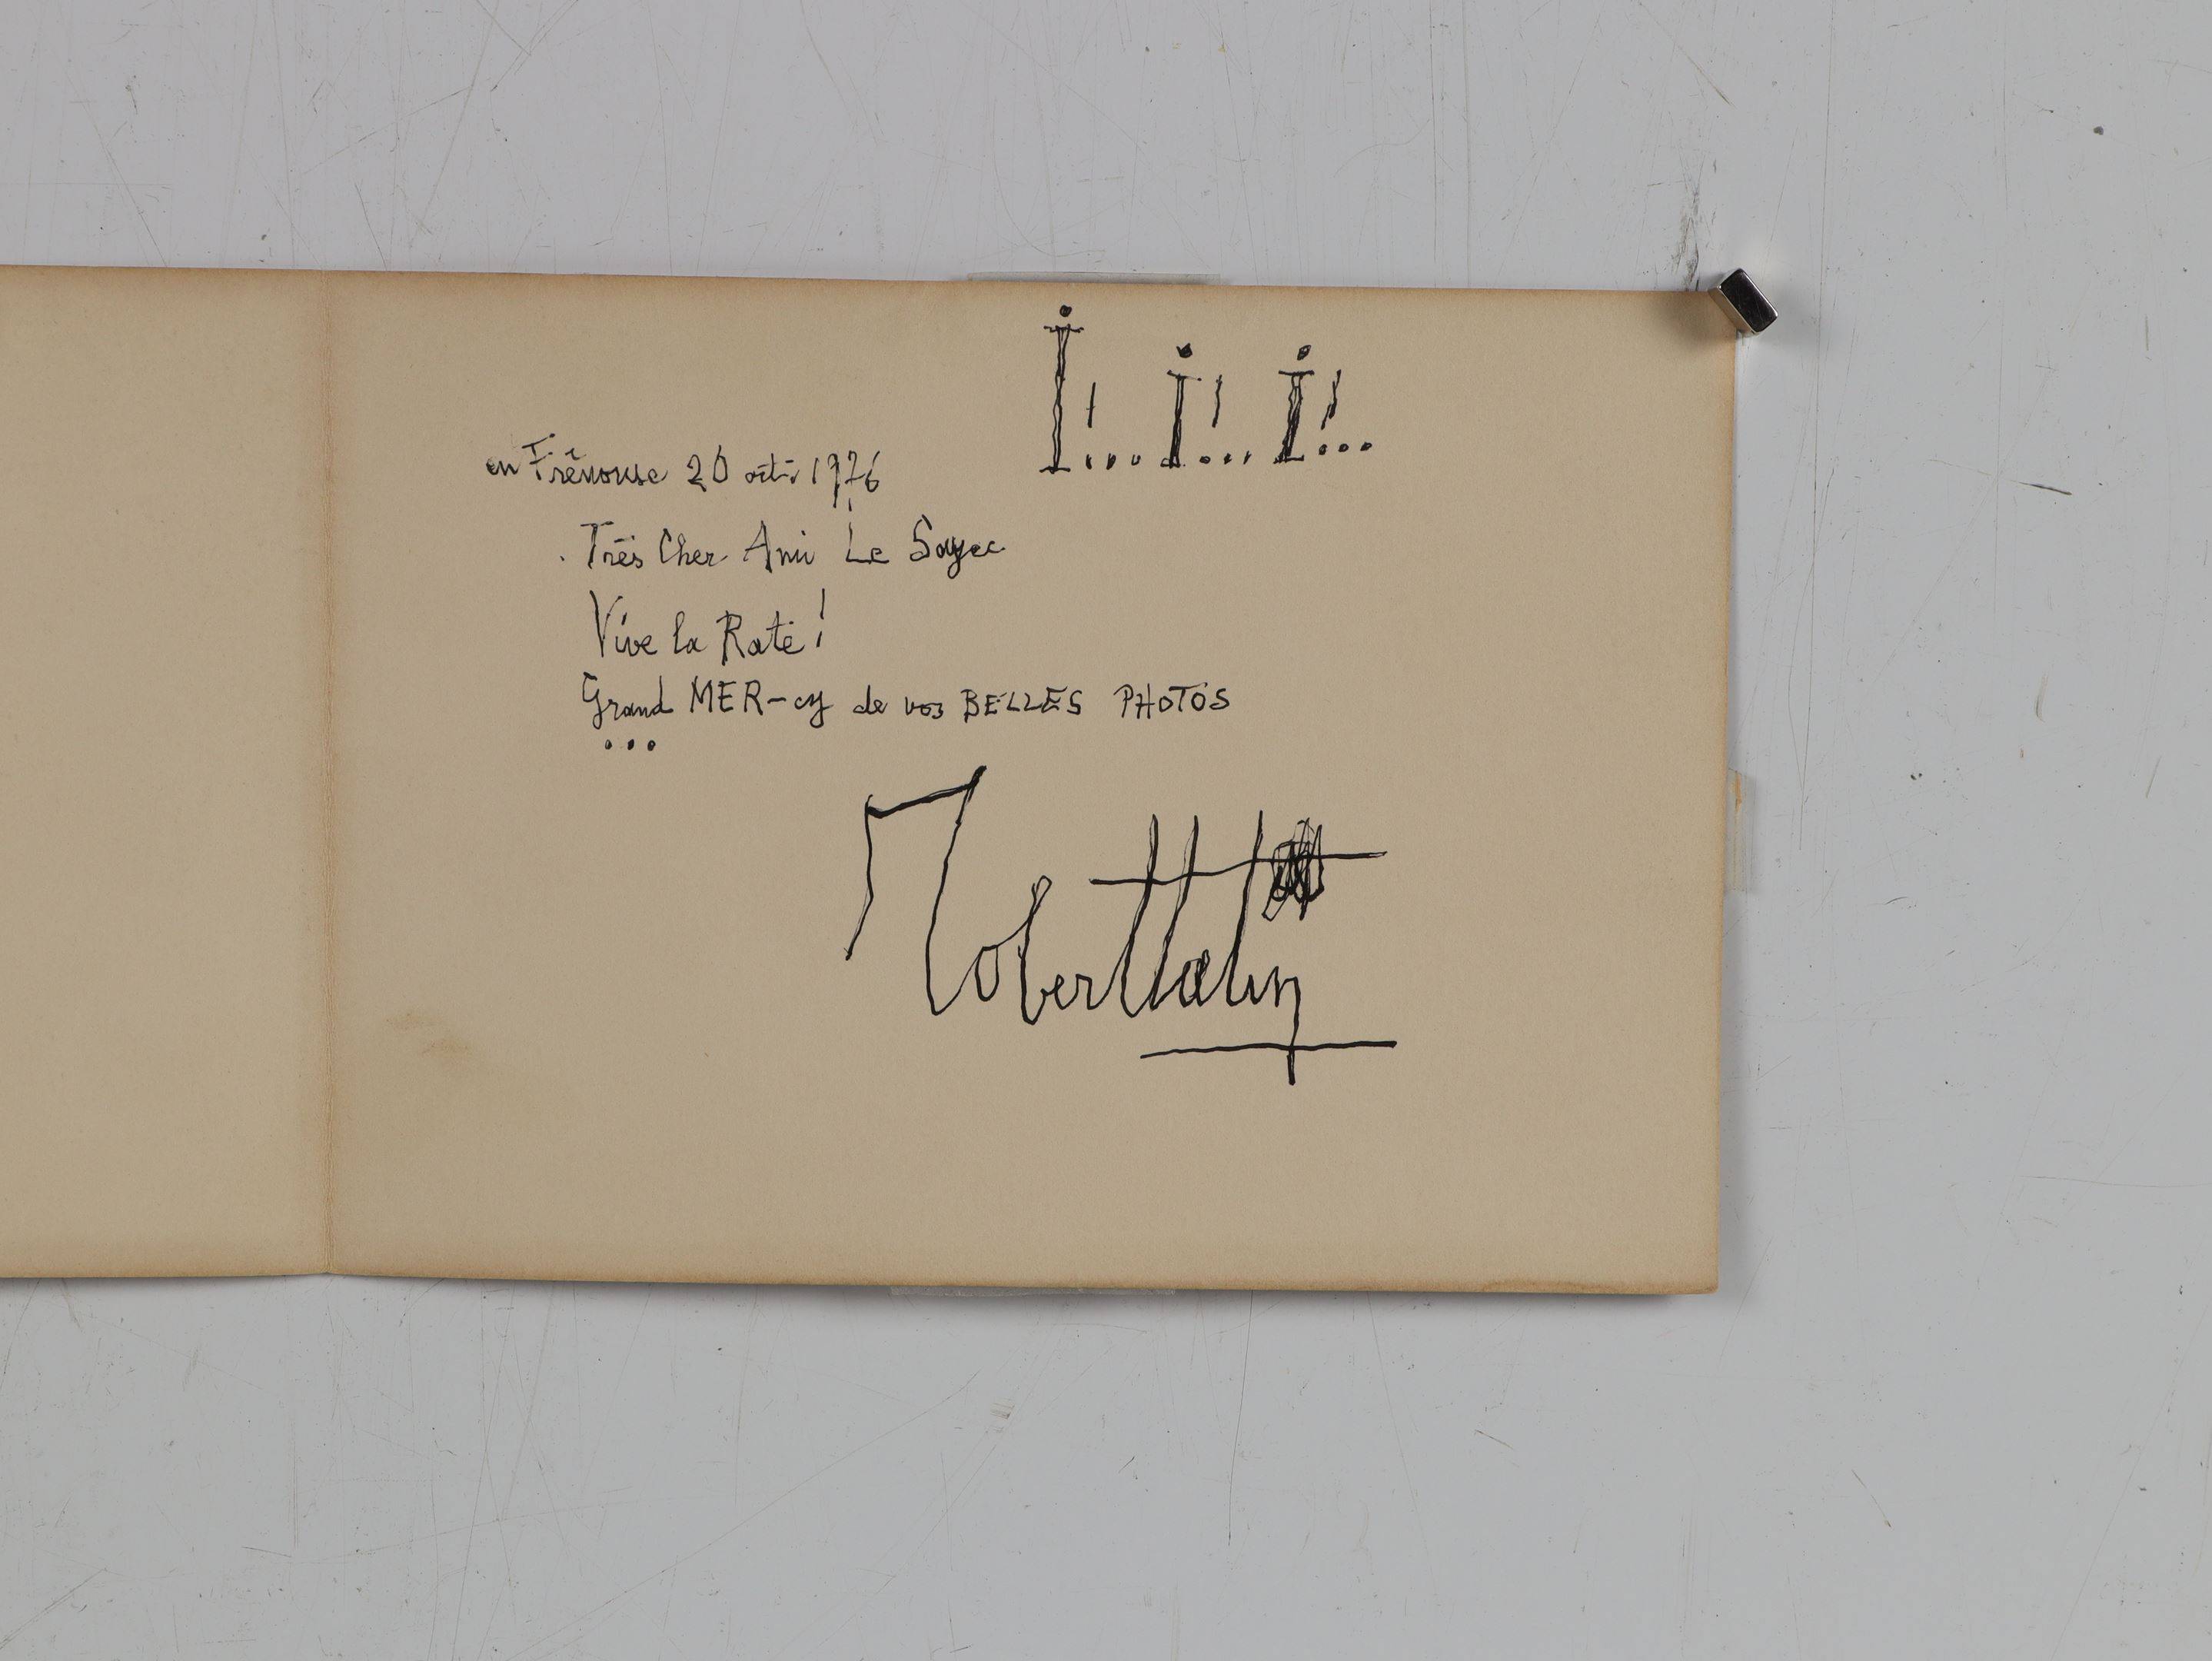 I!... I!... I!...
en Frénouse 20 oct. 1976
. Très Cher Ami Le Sayec
Vive la Rate!
Grand MER-cy de vos BELLES PHOTOS
...
RoberTTatin